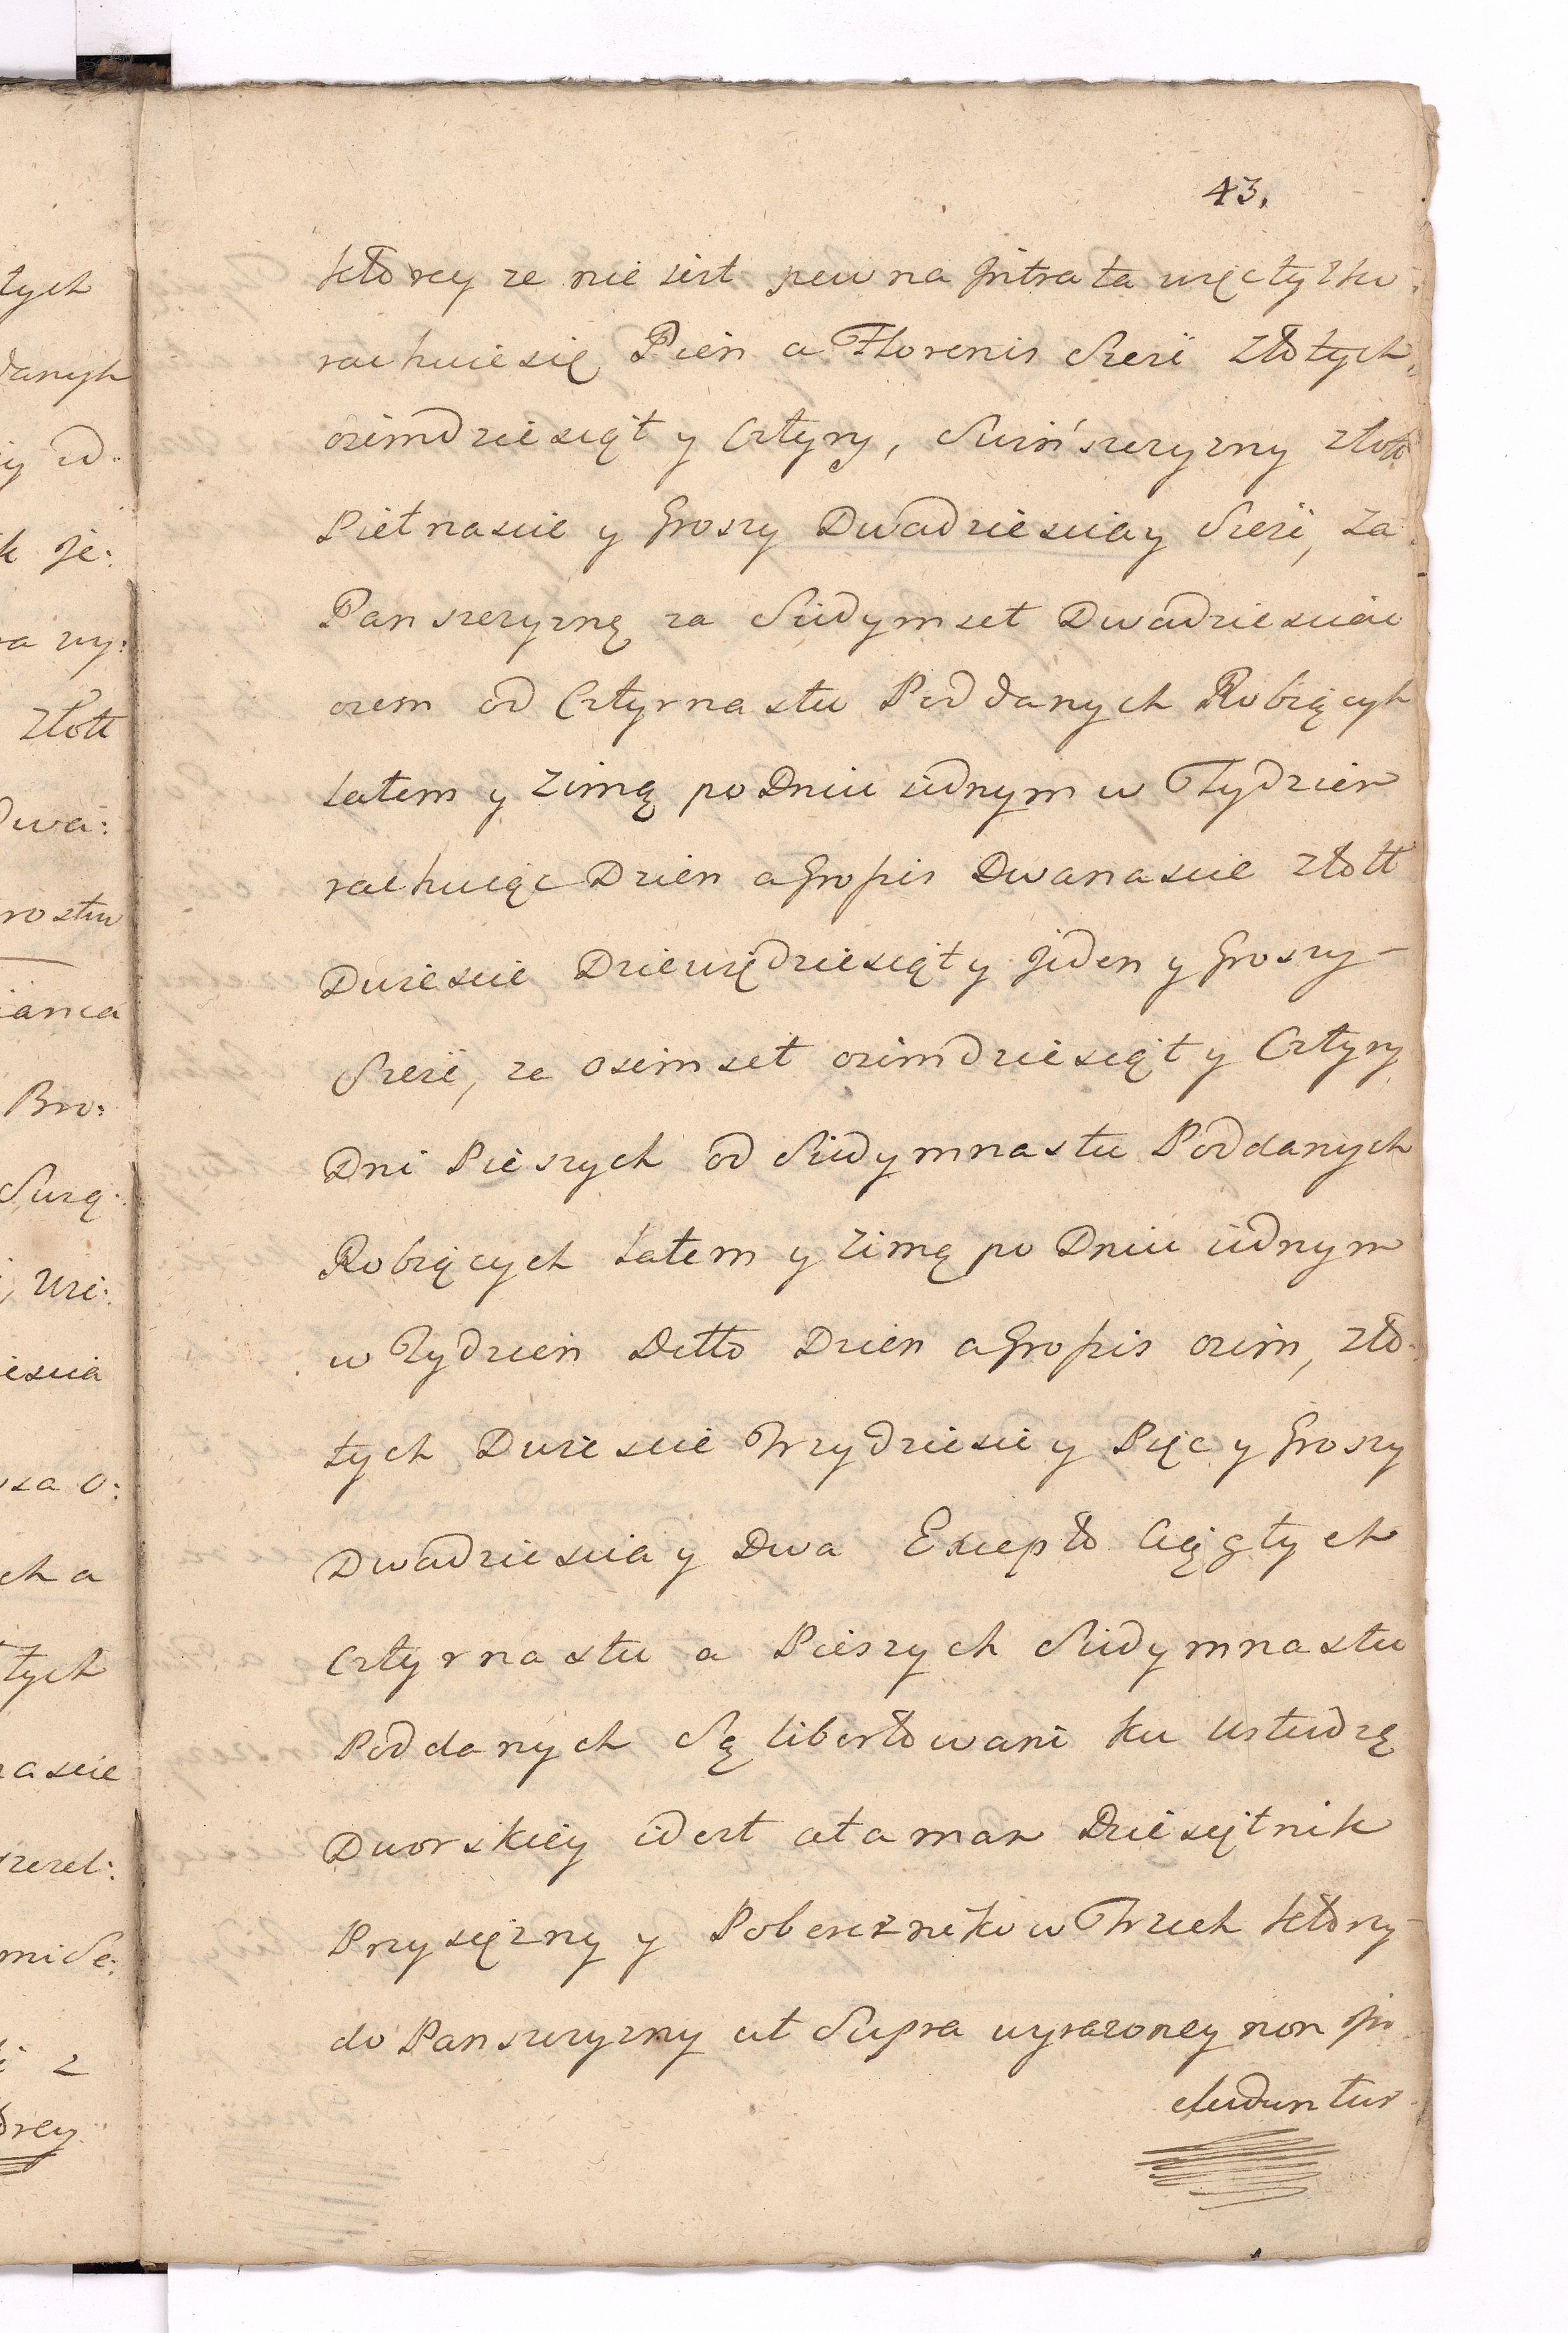 43.
którey ze nie iest pewna Jntrata więc tylko
rachuie się Pień a Florenis Sześć Złotych
osimdziesiąt y Cztyry, Swinszczyzny Złott
Pietnascie y Groszy Dwadziescia y Sześć, Za
Panszczyznę za Siedymset Dwadziescia
osem od Cztyrnastu Poddanych Robiącyh
Latem y Zimą po Dniu iednym w Tydzien
rachuiąc Dzien a Grossis Dwanascie Złott
Dwiescie Dziewiędziesiąt y Jeden y Groszy
Sześć, ze osimset osimdziesiąt y Cztyry
Dni Pieszych od Siedymnastu Poddanych
Robiących Latem y Zimą po Dniu iednym
w Tydzień Detto Dzien a Grossis osim, Zło-
tych Dwiescie Trzydziesie y Pięc y Groszy
Dwadziescia y Dwa Excepto Ciągłych
Cztyrnastu a Pieszych Siedymnastu
Poddanych Są libertowani ku Usłudzę
Dworskiey idest ataman Dziesiętnik
Przysiężny y Pobereznikow Trzech którzy
do Panszczyzny ut Supra wyrazoney non Jn
cluduntur
tych
danyh
y od
k Je:
a wy:
Złott
Dwa:
rostu
ianca
Bro:
Surą
Uzi:
iescia
sza o:
ch a
tych
nascie
szczel:
mi Se:
i z
órey